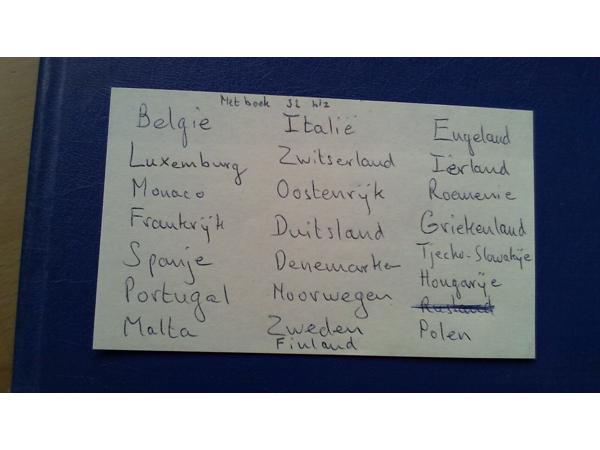 Met boek 32 blz
België
Luxemburg
Monaco
Frankrijk
Spanje
Portugal
Malta
Italië
Zwitserland
Oostenrijk
Duitsland
Denemarken
Noorwegen
Zweden
Finland
Engeland
Ierland
Roemenie
Griekenland
Tjecho-Slowakije
Hongarije
Rusland
Polen